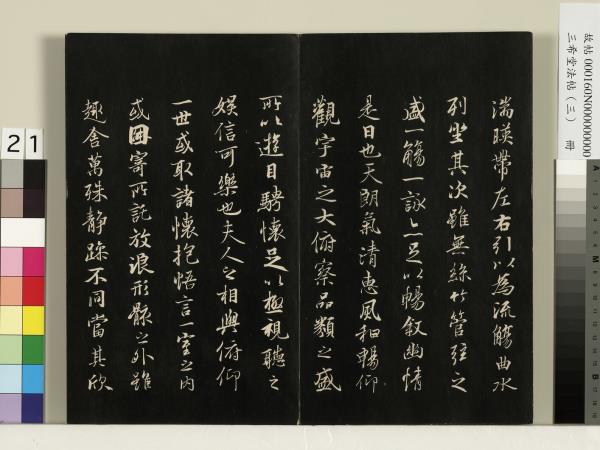 湍暎帶左右引以為流觴曲水
列坐其次雖無絲竹管弦之
盛一觴一詠亦足以暢敘幽情
是日也天朗氣清惠風和暢仰
觀宇宙之大俯察品類之盛
所以遊目騁懷足以極視聽之
娛信可樂也夫人之相與俯仰
一世或取諸懷抱悟言一室之內
或因寄所託放浪形骸之外雖
趣舍萬殊靜躁不同當其欣
故帖 000160N000000000
三希堂法帖（三） 冊
21
A
M
B